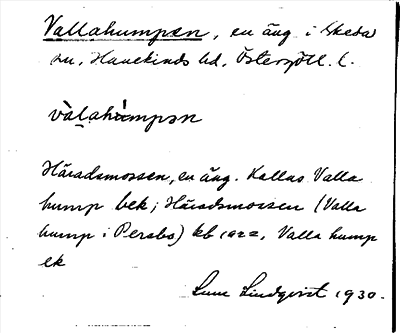 Vallahumpen, en äng i Skeda
sn, Hanekinds hd, Östergötl. l.
vàlahúmpən
Häradsmossen, en äng. Kallas Valla
hump bek; Häradsmossen (Valla
hump i Persbo) kb 1922, Valla hump
ek
Sune Lindqvist 1930.